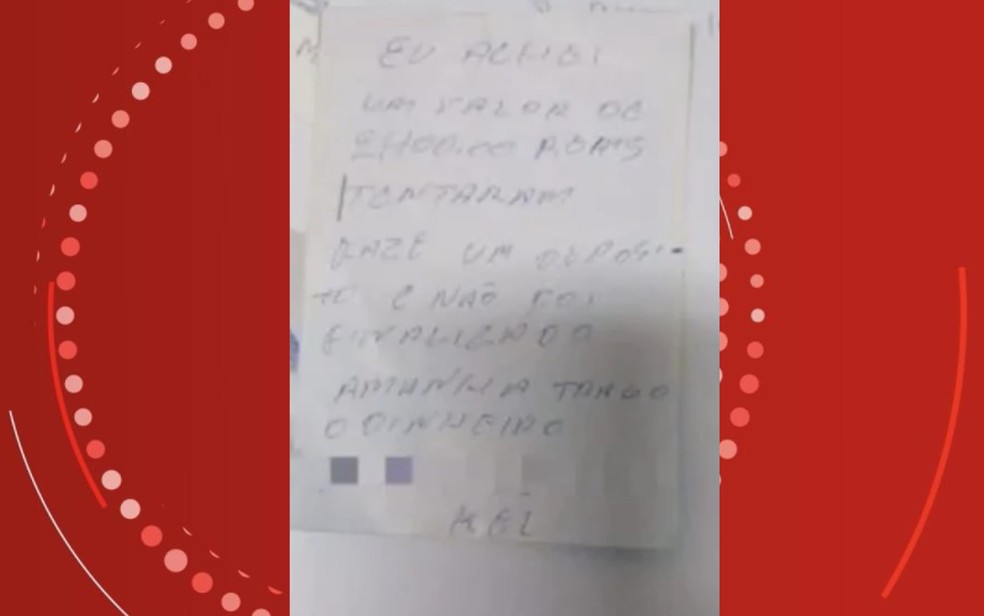 EU ACHEI
UM VALOR DE
2.400,00 REAIS
TENTARAM
FAZÊ UM DEPOSI-
TO E NÃO FOI
FINALIZADO
AMANHÃ TRAGO
O DINHEIRO
KEL